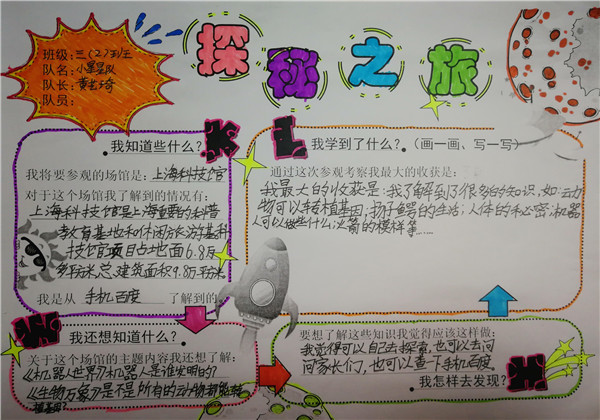 探秘之旅
班级:三(2)班
队名:小星星队
队长:
队员:
我知道些什么?
我将要参观的场馆是:上海科技馆
对于这个场馆我了解到的情况有:
上海科技馆是上海重要的科普
教育基地和休闲旅游基地
技馆项目占地面6.8万
平方米总建筑面积9.8万平方米
我是从 手机百度 了解到的
我学到了什么?(画一画、写一写)
通过这次参观考察我最大的收获是:
我最大的收获是:我了解到了很多的知识,如:动
物可以转植基因;扬子鳄的生活;人体的秘密;机器
人可以做些什么;火箭的模样等……
我还想知道什么?
关于这个场馆的主题内容我还想了解:
《机器人世界》机器人是谁发明的?
《生物万象》是不是所有的动物都能转
植基因?
要想了解这些知识我觉得应该这样做:
我觉得可以自己去探索,也可以去问
问家长们,也可以查一下手机百度
我怎样去发现?